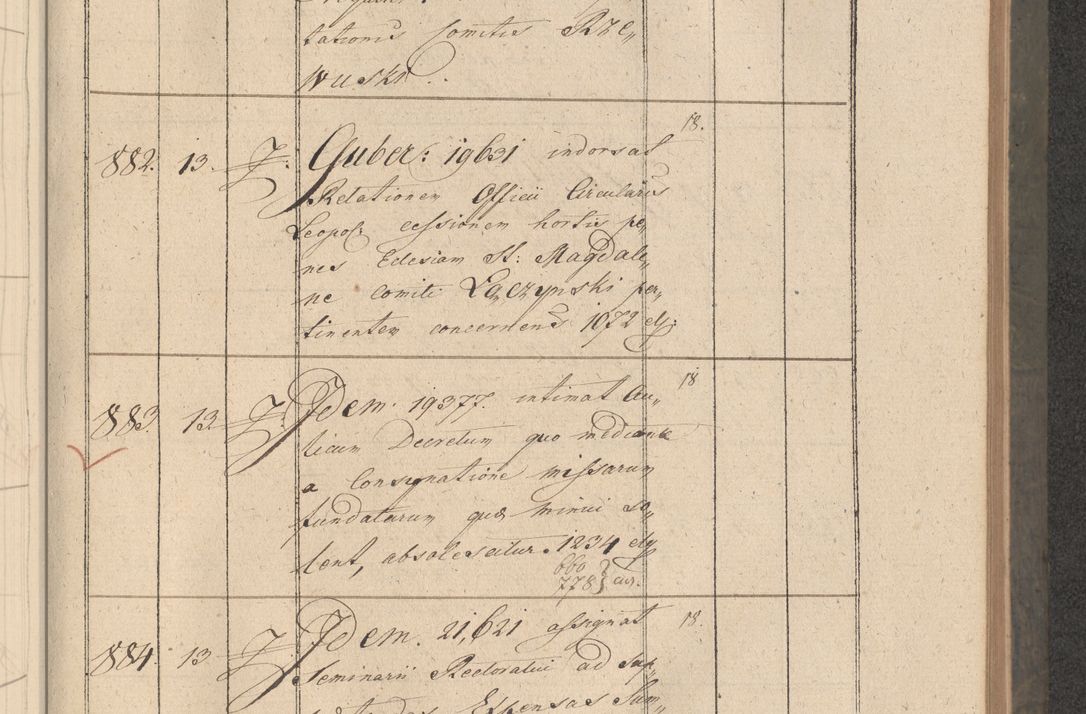 tationis Comitis Rze„
wuski.
18.
882. 13. Guber: 19631 indorsat
Relationem Officii Circularis
Leopol: cessionem hortis pe„
nes Eclesiam St: Magdale„
ne Comiti Łączynski per„
tinentem concernens 1072
18
883. 13 Idem. 19377. intimat Au„
licum Decretum quo mediante
a Consignatione missarum
fundatarum quæ minui so„
lent, absolescitur. 1234
660
778 } cur.
18.
884. 13 Idem. 21,621 assignat
Seminarii Rectoratui ad sup„
Expensas Sum„